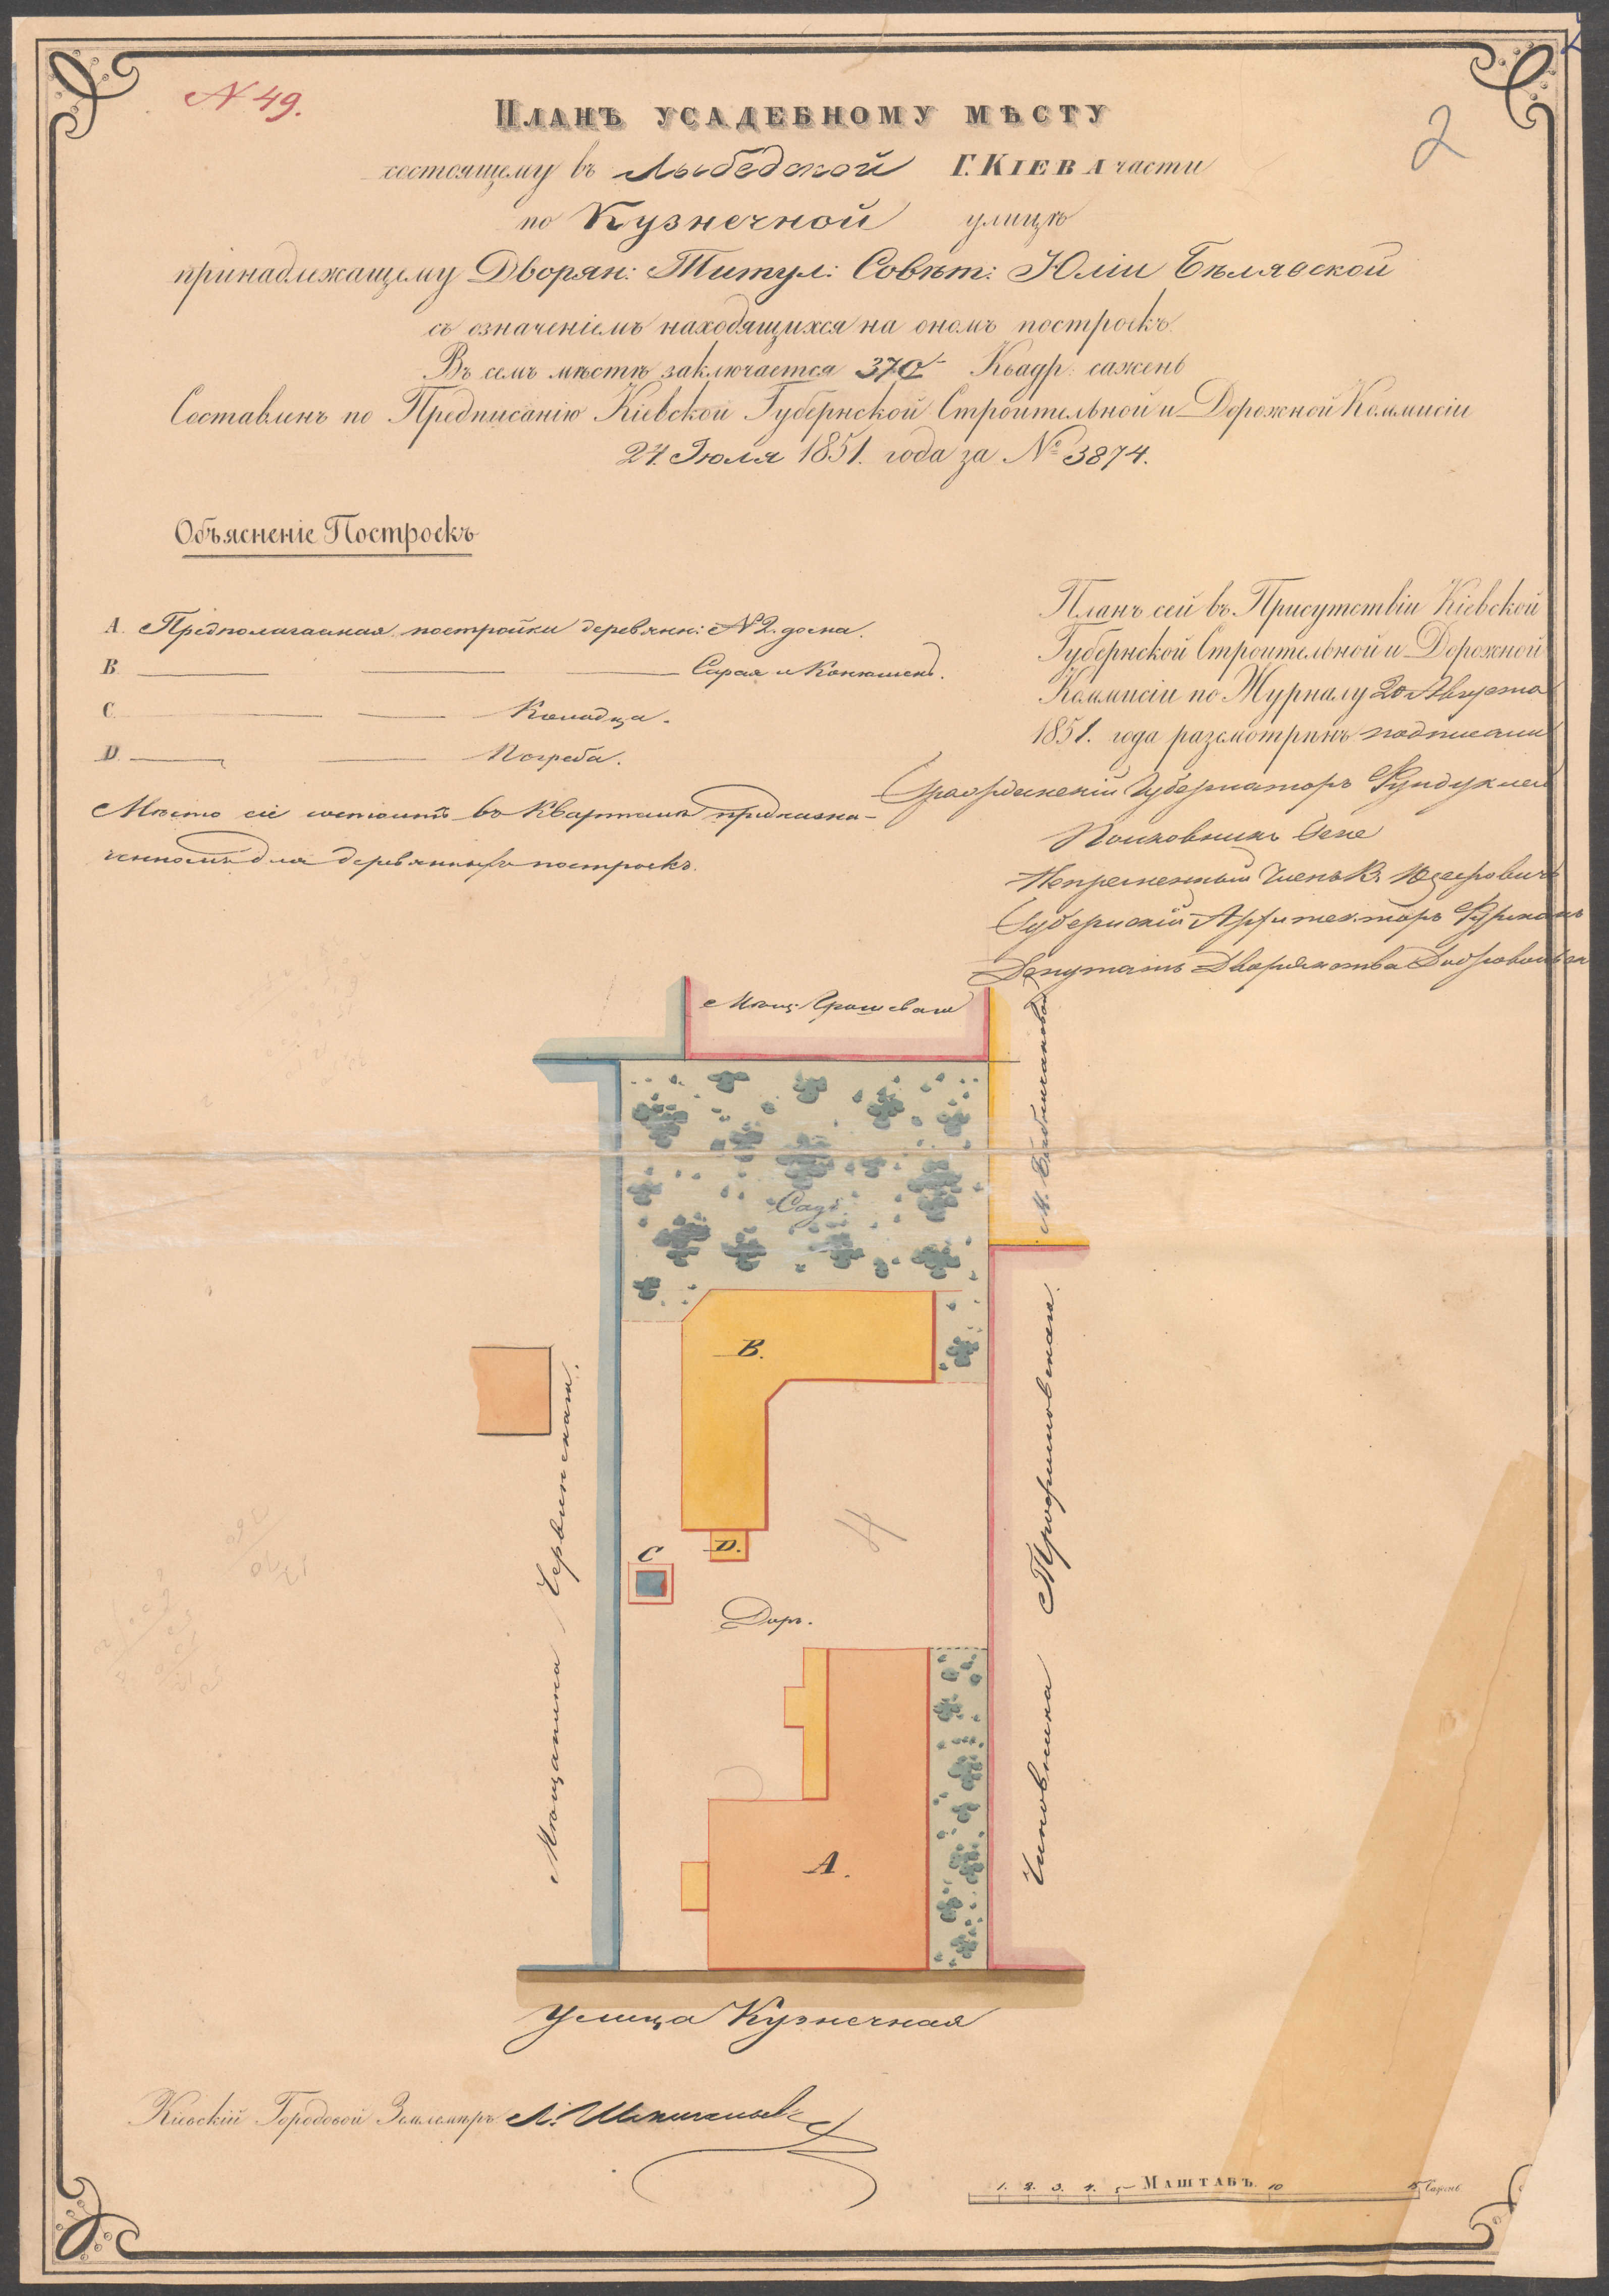 N 49.
2
Планъ усадебному мѣсту
состоящему въ Лыбедской Г. Кіева части
по Кузнечной улицѣ
принадлежащему Дворян: Титул: Совѣт: Юліи Бѣлявской
съ означеніемъ находящихся на ономъ построекъ
Въ семъ мѣстѣ заключается 370 Квадр: сажень
Составленъ по Предписанію Кіевской Губернской Строительной и Дорожной Коммисіи
24 Іюля 1851. года за № 3874.
Объясненіе Построекъ
A. Предполагаемая постройки деревянн: N 2. дома.
B. Сарая и Конюшень.
C. Колодца.
D. Погреба.
Мѣсто сіе состоитъ въ Кварталѣ предназна-
ченномъ для деревянныхъ построекъ.
Планъ сей въ Присутствіи Кіевской
Губернской Строительной и Дорожной
Коммисіи по Журналу 20 Августа
1851. года разсмотрѣнъ подписали
Гражданскій Губернаторъ Фундуклей
Полковникъ
Непремѣнный Членъ
Губернскій Архитекторъ
Депутатъ Дворянства
Мѣщ:
М.
Садъ
B.
D.
C
4
Дворъ.
A.
Мѣщанина Червинскаго.
Чиновника Трофимовскаго.
Улица Кузнечная
Кіевскій Городовой Землемѣръ
1. 2. 3. 4. 5 Маштабъ. 10 15 Сажень